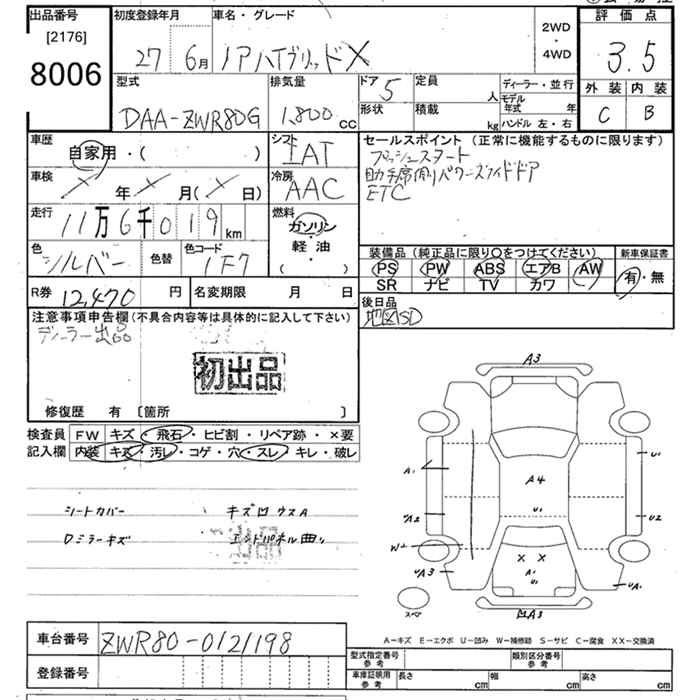 出品番号
[2176]
8006
初度登録年月
27 6月
車名・グレード
ノアハイブリッドX
2WD
・
4WD
評価点
3.5
外装 内装
C B
型式
DAA-ZWR80G
排気量
1,800 cc
ドア 5
形状
定員 人
積載 kg
ディーラー・並行
モデル年式 年
ハンドル 左・右
車歴
自家用・( )
シフト
IAT
車検
× 年 × 月(× 日)
冷房
AAC
走行
11万6千019km
燃料
ガソリン
・
軽油
( )
色
シルバー
色替
色コード
1F7
セールスポイント (正常に機能するものに限ります)
プッシュスタート
助手席側パワースライドドア
ETC
装備品 (純正品に限り〇をつけてください)
PS PW ABS エアB AW
SR ナビ TV カワ
新車保証書
有・無
R券 12,470 円
名変期限 月 日
後日品
地図SD
注意事項申告欄(不具合内容等は具体的に記入して下さい)
ディーラー出品
初出品
修復歴 有 [箇所 ]
検査員
記入欄
FW キズ・飛石・ヒビ割・リペア跡・×要
内装 キズ・汚レ・コゲ・穴・スレ・キレ・破レ
シートカバー
Dミラーキズ
出品
エンドパネル曲り
A3
A1
A4
U1
U1
A2
U2
W
A1
U1
UA3
UA1
スペア
A3
A-キズ E-エクボ U-凹み W-補修跡 S-サビ C-腐食 XX-交換済
車台番号
ZWR80-0121198
登録番号
型式指定番号
参考
類別区分番号
参考
車庫証明用
参考
長さ cm
幅 cm
高さ cm